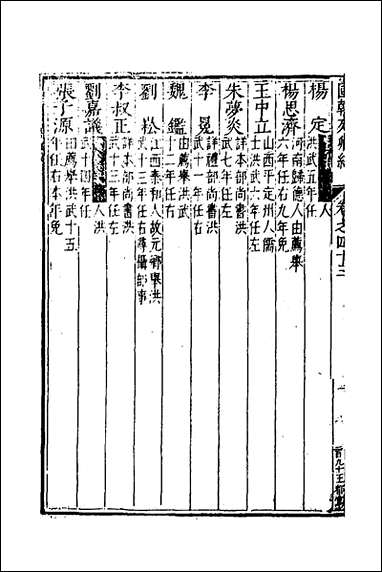 國朝列卿紀 卷之四十三
楊定 洪武五年任
楊思濟 河南歸德人由薦舉
六年任右九年免
王中立 山西平定州人儒
士洪武六年任左
朱夢炎 詳本部尚書洪
武七年任左
李冕 詳禮部尚書洪
武十一年任右
魏鑑 由薦舉洪武
十二年任右
劉崧 江西泰和人故元鄉舉洪
武十三年任右尋攝部事
李叔正 詳本部尚書洪
武十三年任左
劉嘉議 人洪
武十四年任
張了源 由薦舉洪武十五
年任右本年免